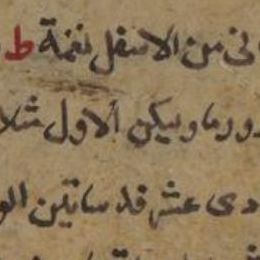 نى من الاسفل نغمة ط
ورما وليكن الاول ثلا
دى عشر فدساتين الو